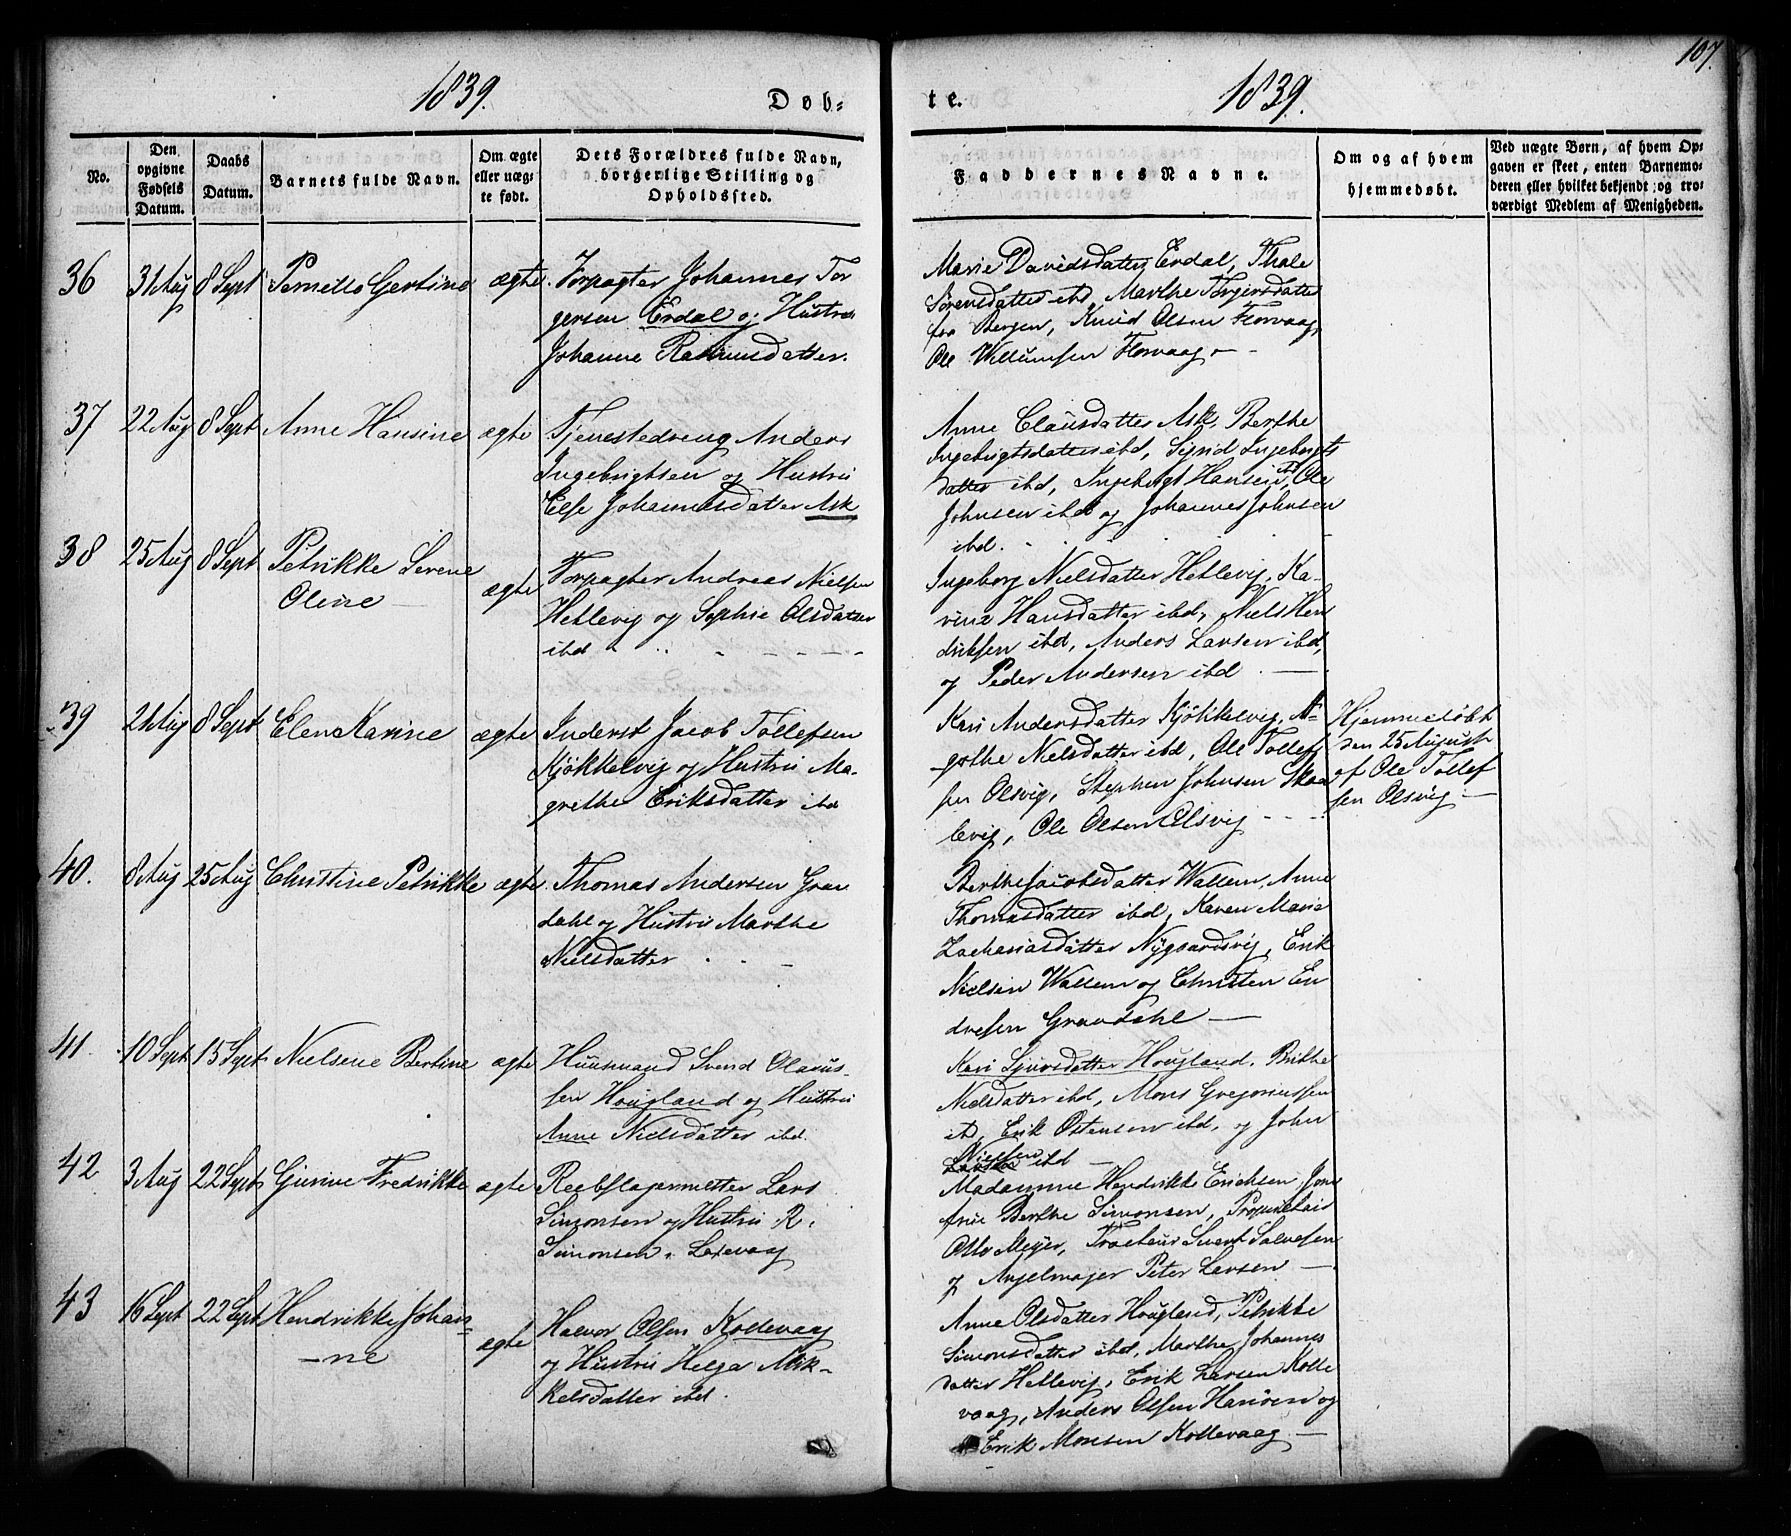 107.
1839.
Døb-
te.
1839.
No.
Den opgivne Fødsels Datum.
Daabs Datum.
Barnets fulde Navn.
Om ægte eller uægte født.
Dets Forældres fulde Navn, borgerlige Stilling og Opholdssted.
Faddernes Navne.
Om og af hvem hjemmedøbt.
Ved uægte Børn, af hvem Opgaven er skeet, enten Barnemoderen eller hvilket bekjendt og troværdigt Medlem af Menigheden.
36
31 Aug
8 Sept
Pernelle Gertine
ægte
Forpagter Johannes Tor
gersen Erdal og Hustru
Johanne Rasmusdatter.
Marie Davidsdatter Erdal, Thale
Sørensdatter ibd, Marthe Torgersdatter
fra Bergen, Knud Olsen Florvaag,
Ole Willumsen Florvaag -
37
22 Aug
8 Sept
Anne Hansine
ægte
Tjenestedreng Anders
Ingebrigtsen og Hustru
Else Johannesdatter Ask
Anne Clausdatter Ask, Berthe
Ingebrigtsdatter ibd, Sigrid Ingebrigts
datter ibd, Ingebrigt Hansen ibd, Ole
Johnsen ibd og Johannes Johnsen
ibd.
38
25 Aug
8 Sept
Petrikke Serene
Oline
ægte
Forpagter Andreas Nielsen
Hetlevig og Sophie Olsdatter
ibd
Ingeborg Nielsdatter Hetlevig, Ka-
rine Hansdatter ibd, Niels Hen
driksen ibd, Anders Larsen ibd,
og Peder Andersen ibd
39
21 Aug
8 Sept
Elen Karine
ægte
Inderst Jacob Tollefsen
Kjøkkelvig og Hustru Ma-
grethe Eriksdatter ibd
Kari Andersdatter Kjøkkelvig, A-
gothe Nielsdatter ibd, Ole Tollef
sen Olsvig, Stephen Johnsen Skaa
levig, Ole Olsen Olsvig
Hjemmedøbt
den 25 August
af Ole Tollef
sen Olsvig
40.
8 Aug
25 Aug
Christine Petrikke
ægte
Thomas Andersen Grau
dahl og Hustru Marthe
Nielsdatter
Berthe Jacobsdatter Wallem, Anne
Thomasdatter ibd, Karen Marie
Zachariasdatter Nygaardsvig, Erik
Nielsen Wallem og Christen En
dresen Graudahl
41.
10 Sept
15 Sept
Nielsene Bertine
ægte
Huusmand Svend Olaus-
sen Hougland og Hustru
Anne Nielsdatter ibd.
Kari Sjursdatter Hougland, Brithe
Nielsdatter ibd, Mons Gregoriussen
ibd, Erik Ostensen ibd, og John
Nielsen ibd
42
3 Aug
22 Sept
Gurine Fredrikke
ægte
Reebslagermester Lars
Simonsen og Hustru R.
Simonsen, Laxevaag
Madamme Hendrikke Erichsen, Jom
frue Berthe Simonsen, Proprietair
Otto Meyer, Tracteur Svent Salvesen
og Angelmager Peter Larsen
43
16 Sept
22 Sept
Hendrikke Johan-
-ne
ægte
Halvor Olsen Kollevaag
og Hustru Helga Mik-
kelsdatter ibd.
Anne Olsdatter Hougland, Petrikke
Simonsdatter ibd, Marthe Johannes
datter Hetlevig, Erik Larsen Kolle
vaag, Anders Olsen Hanøen og
Erik Monsen Kollevaag